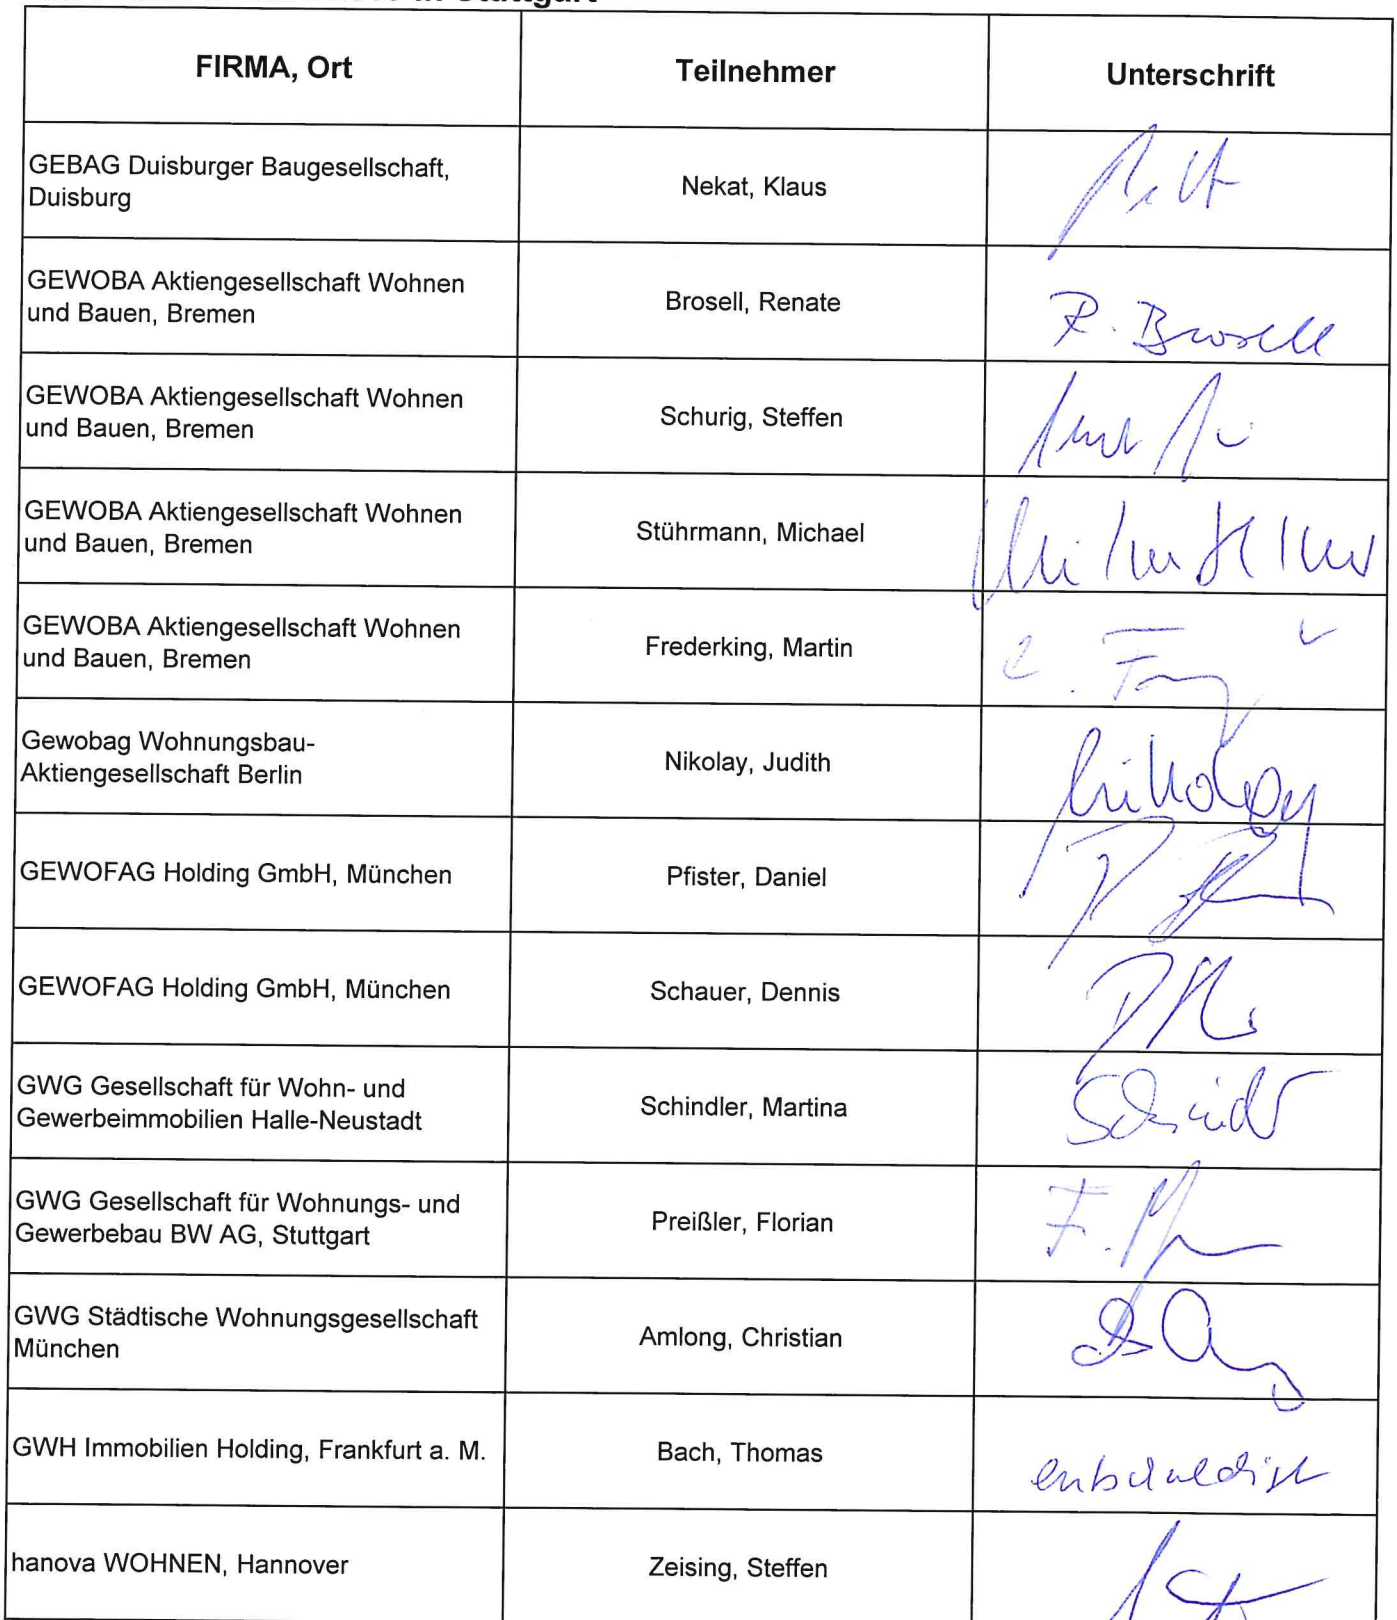 in Stuttgart
FIRMA, Ort
Teilnehmer
Unterschrift
GEBAG Duisburger Baugesellschaft,
Duisburg
Nekat, Klaus
GEWOBA Aktiengesellschaft Wohnen
und Bauen, Bremen
Brosell, Renate
R. Brosell
GEWOBA Aktiengesellschaft Wohnen
und Bauen, Bremen
Schurig, Steffen
GEWOBA Aktiengesellschaft Wohnen
und Bauen, Bremen
Stührmann, Michael
GEWOBA Aktiengesellschaft Wohnen
und Bauen, Bremen
Frederking, Martin
Gewobag Wohnungsbau-
Aktiengesellschaft Berlin
Nikolay, Judith
Nikolay
GEWOFAG Holding GmbH, München
Pfister, Daniel
GEWOFAG Holding GmbH, München
Schauer, Dennis
GWG Gesellschaft für Wohn- und
Gewerbeimmobilien Halle-Neustadt
Schindler, Martina
GWG Gesellschaft für Wohnungs- und
Gewerbebau BW AG, Stuttgart
Preißler, Florian
GWG Städtische Wohnungsgesellschaft
München
Amlong, Christian
GWH Immobilien Holding, Frankfurt a. M.
Bach, Thomas
entschuldigt
hanova WOHNEN, Hannover
Zeising, Steffen